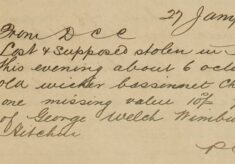 27 Jany
From D C C
Lost & supposed stolen in
This evening about 6 oclo
old wicker bassonet Ch
one missing value 10/
of George Welch Wimbu
Fitchur
P.C